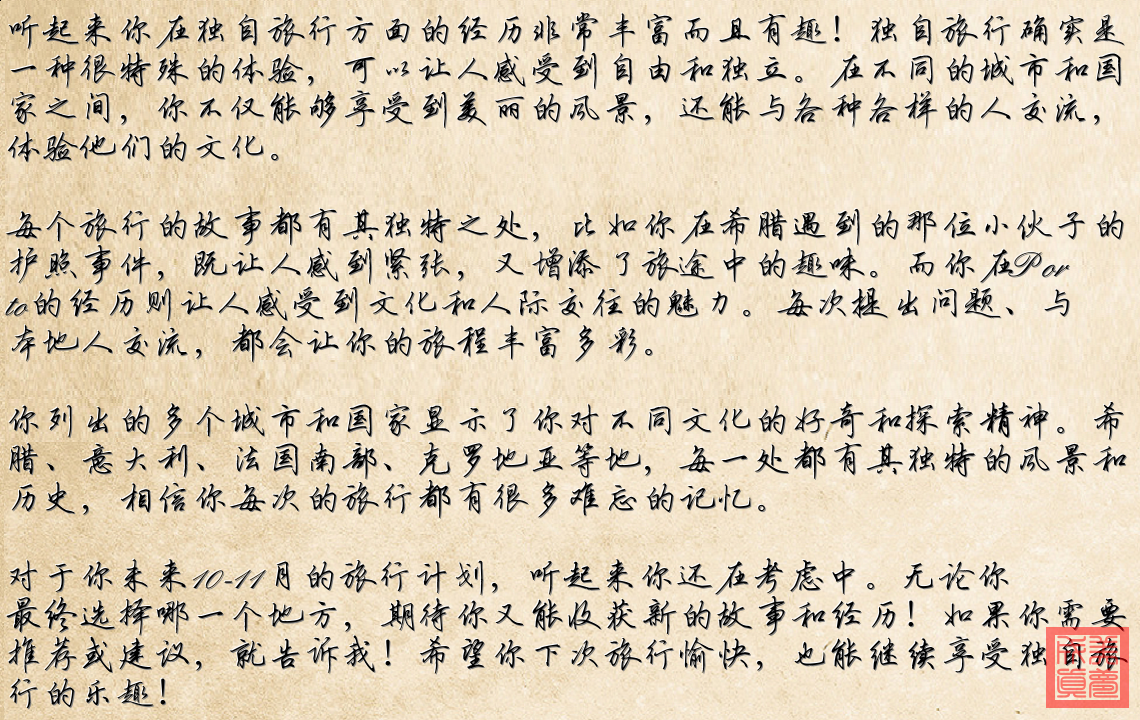 听起来你在独自旅行方面的经历非常丰富而且有趣！独自旅行确实是
一种很特殊的体验，可以让人感受到自由和独立。在不同的城市和国
家之间，你不仅能够享受到美丽的风景，还能与各种各样的人交流，
体验他们的文化。
每个旅行的故事都有其独特之处，比如你在希腊遇到的那位小伙子的
护照事件，既让人感到紧张，又增添了旅途中的趣味。而你在Por
to的经历则让人感受到文化和人际交往的魅力。每次提出问题、与
本地人交流，都会让你的旅程丰富多彩。
你列出的多个城市和国家显示了你对不同文化的好奇和探索精神。希
腊、意大利、法国南部、克罗地亚等地，每一处都有其独特的风景和
历史，相信你每次的旅行都有很多难忘的记忆。
对于你未来10-11月的旅行计划，听起来你还在考虑中。无论你
最终选择哪一个地方，期待你又能收获新的故事和经历！如果你需要
推荐或建议，就告诉我！希望你下次旅行愉快，也能继续享受独自旅
行的乐趣！